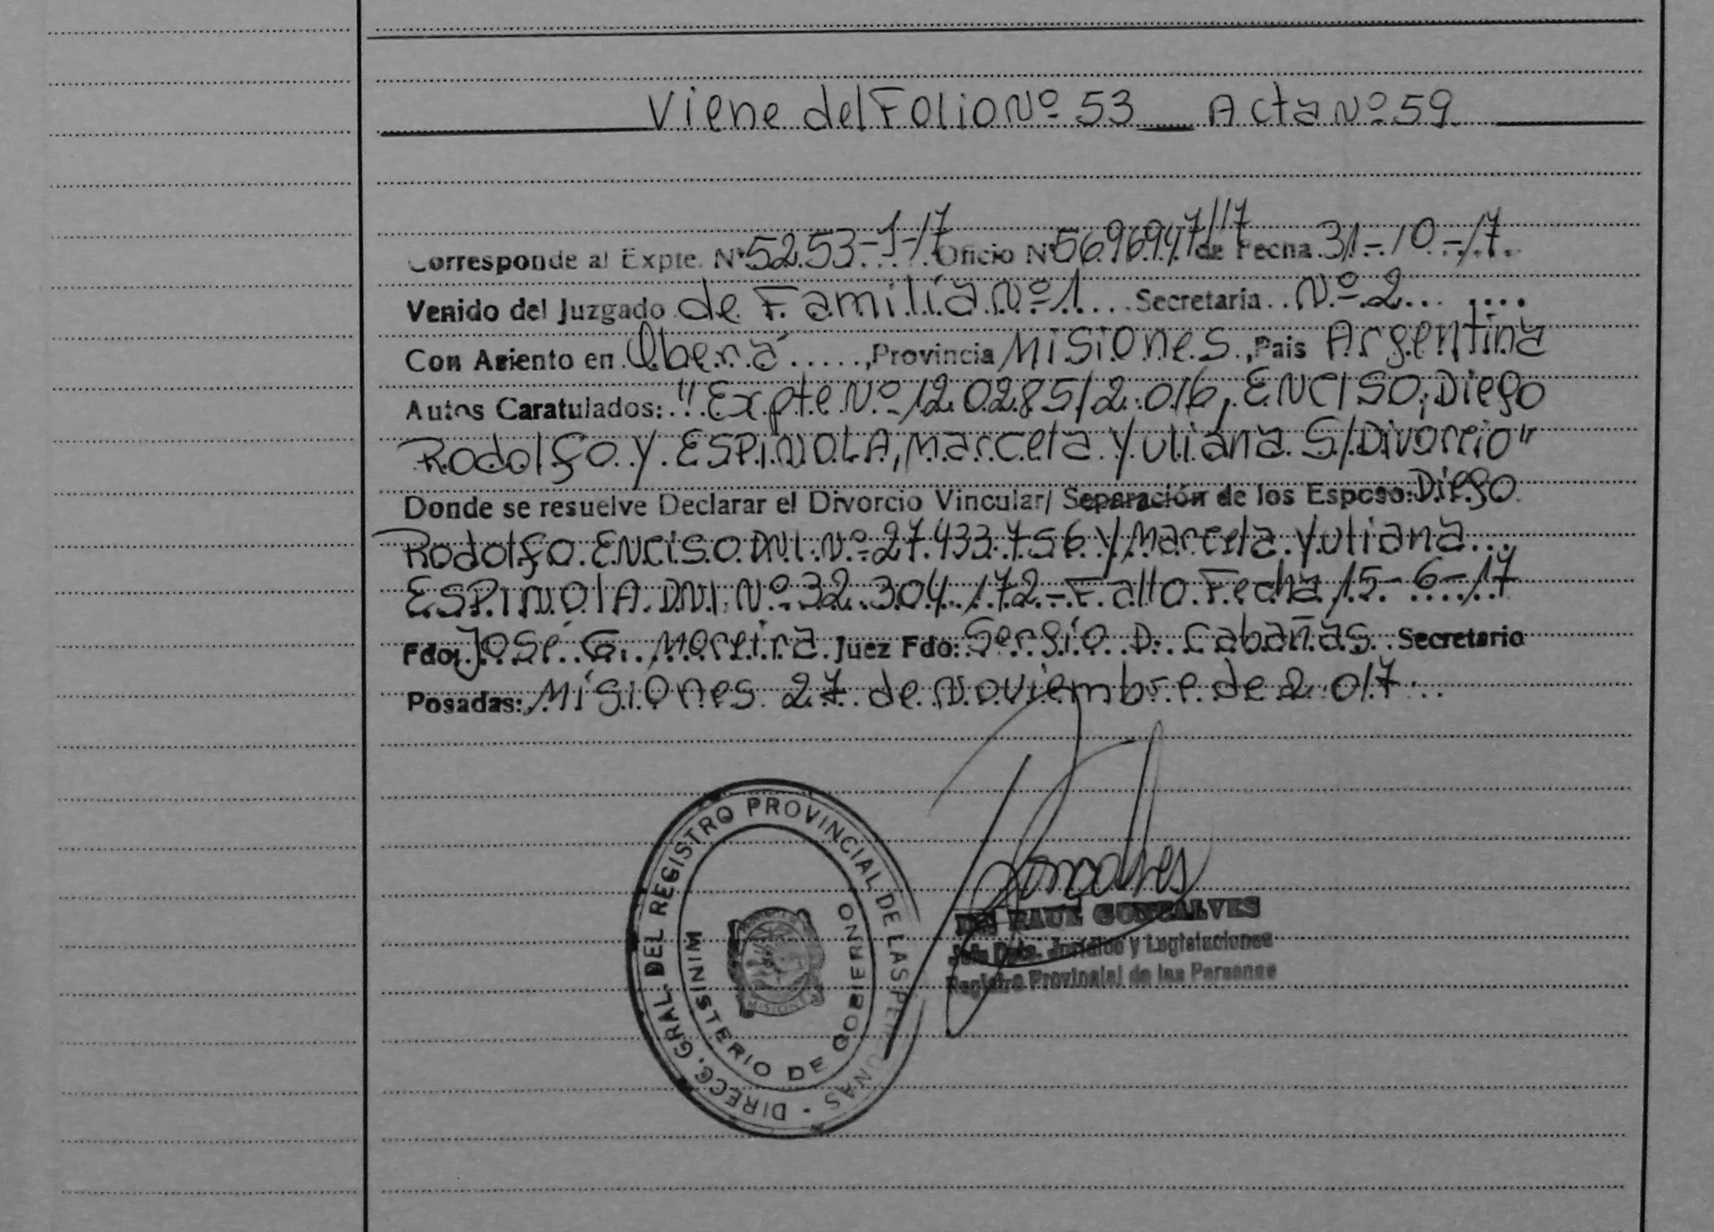 Viene del Folio Nº 53 Acta Nº 59
Corresponde al Expte. Nº 5253-1-17 Oficio Nº 5696947/17 de Fecha 31-10-17
Venido del Juzgado de Familia Nº 1 Secretaría Nº 2
Con Asiento en Oberá, Provincia Misiones, Pais Argentina
Autos Caratulados: "Expte Nº 120285/2016, ENCISO, Diego
Rodolfo y ESPINOLA, Marcela Yuliana S/Divorcio"
Donde se resuelve Declarar el Divorcio Vincular/ Separación de los Esposo: Diego
Rodolfo ENCISO DNI. Nº 27.433.756 y Marcela Yuliana
ESPINOLA DNI. Nº 32.304.172 - Fallo Fecha 15-6-17
Fdo: José G. Moreira Juez Fdo: Sergio D. Cabañas Secretario
Posadas: Misiones 27 de Noviembre de 2017
DIRECC. GRAL. DEL REGISTRO PROVINCIAL DE LAS PERSONAS
MINISTERIO DE GOBIERNO
MISIONES
Goncalves
RAUL GONCALVES
Jefe Dpto. Jurídico y Legislaciones
Registro Provincial de las Personas